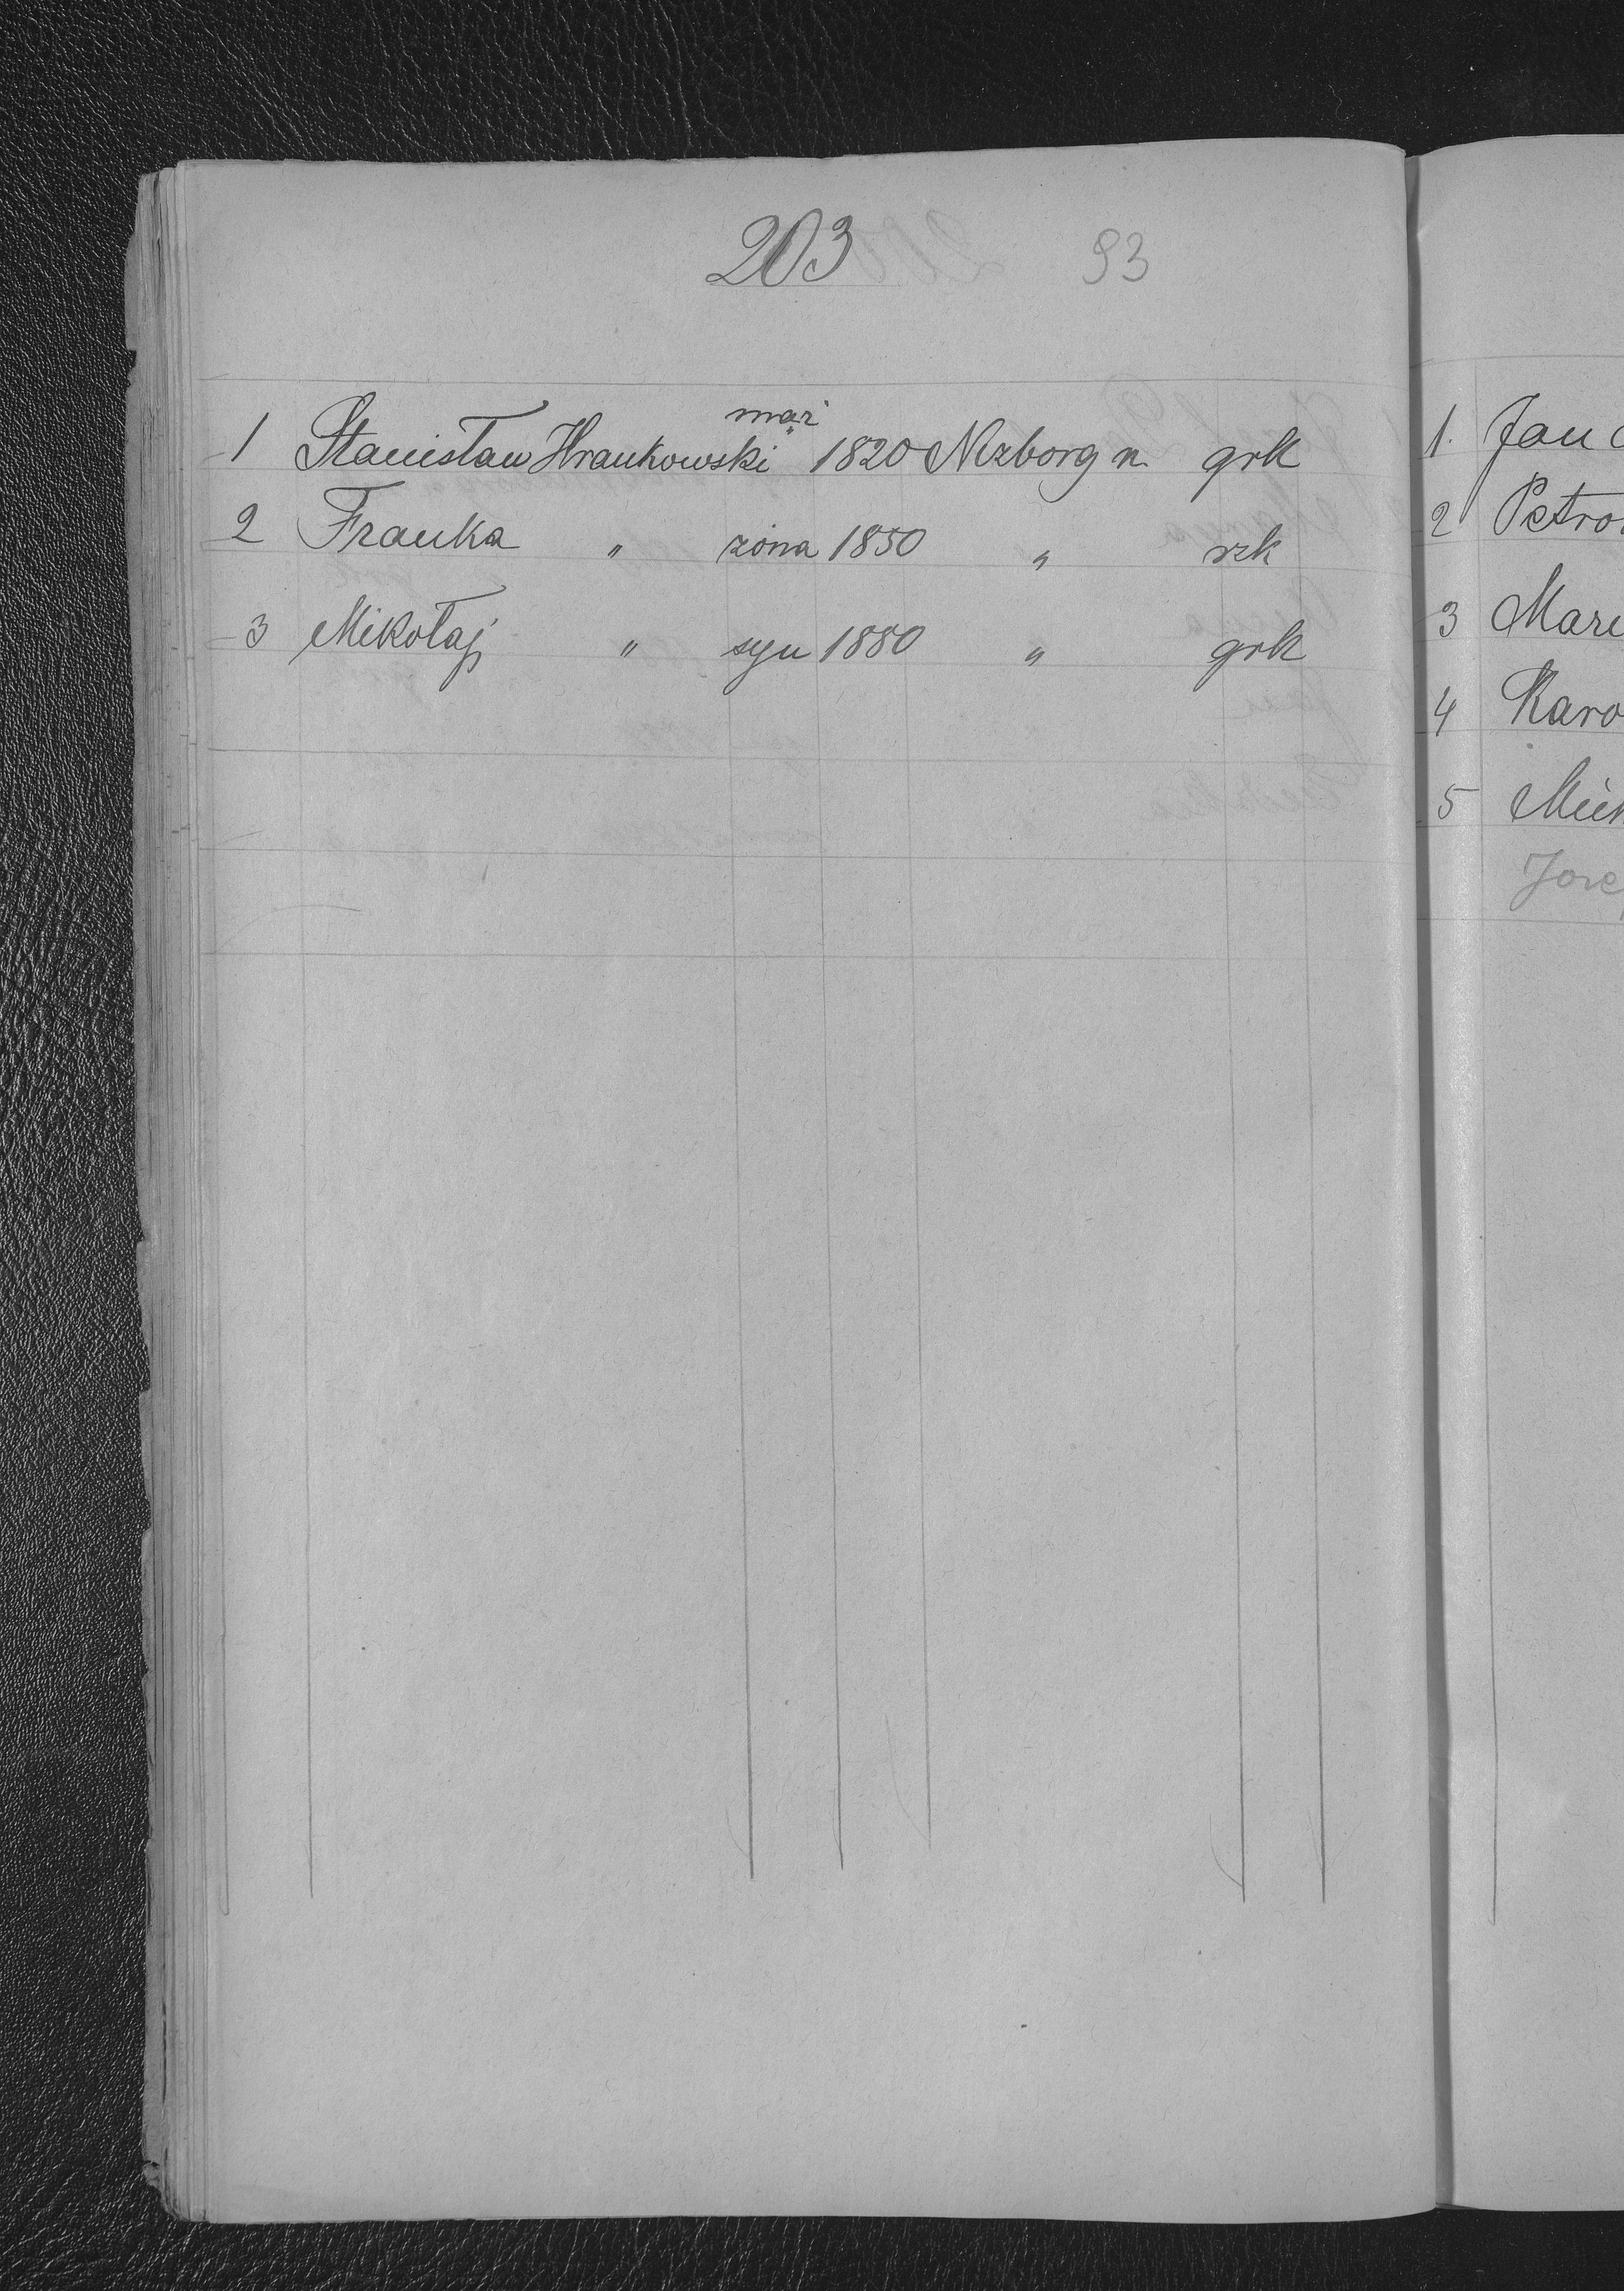 203 93
mąż
1 Stanisław Hrankowski 1820 Nizborg n. grk
2 Franka " żona 1850 " rzk
3 Mikołaj " syn 1880 " grk
1. Jan
2 Petro
3 Mary
4 Karo
5 Mich
Joze